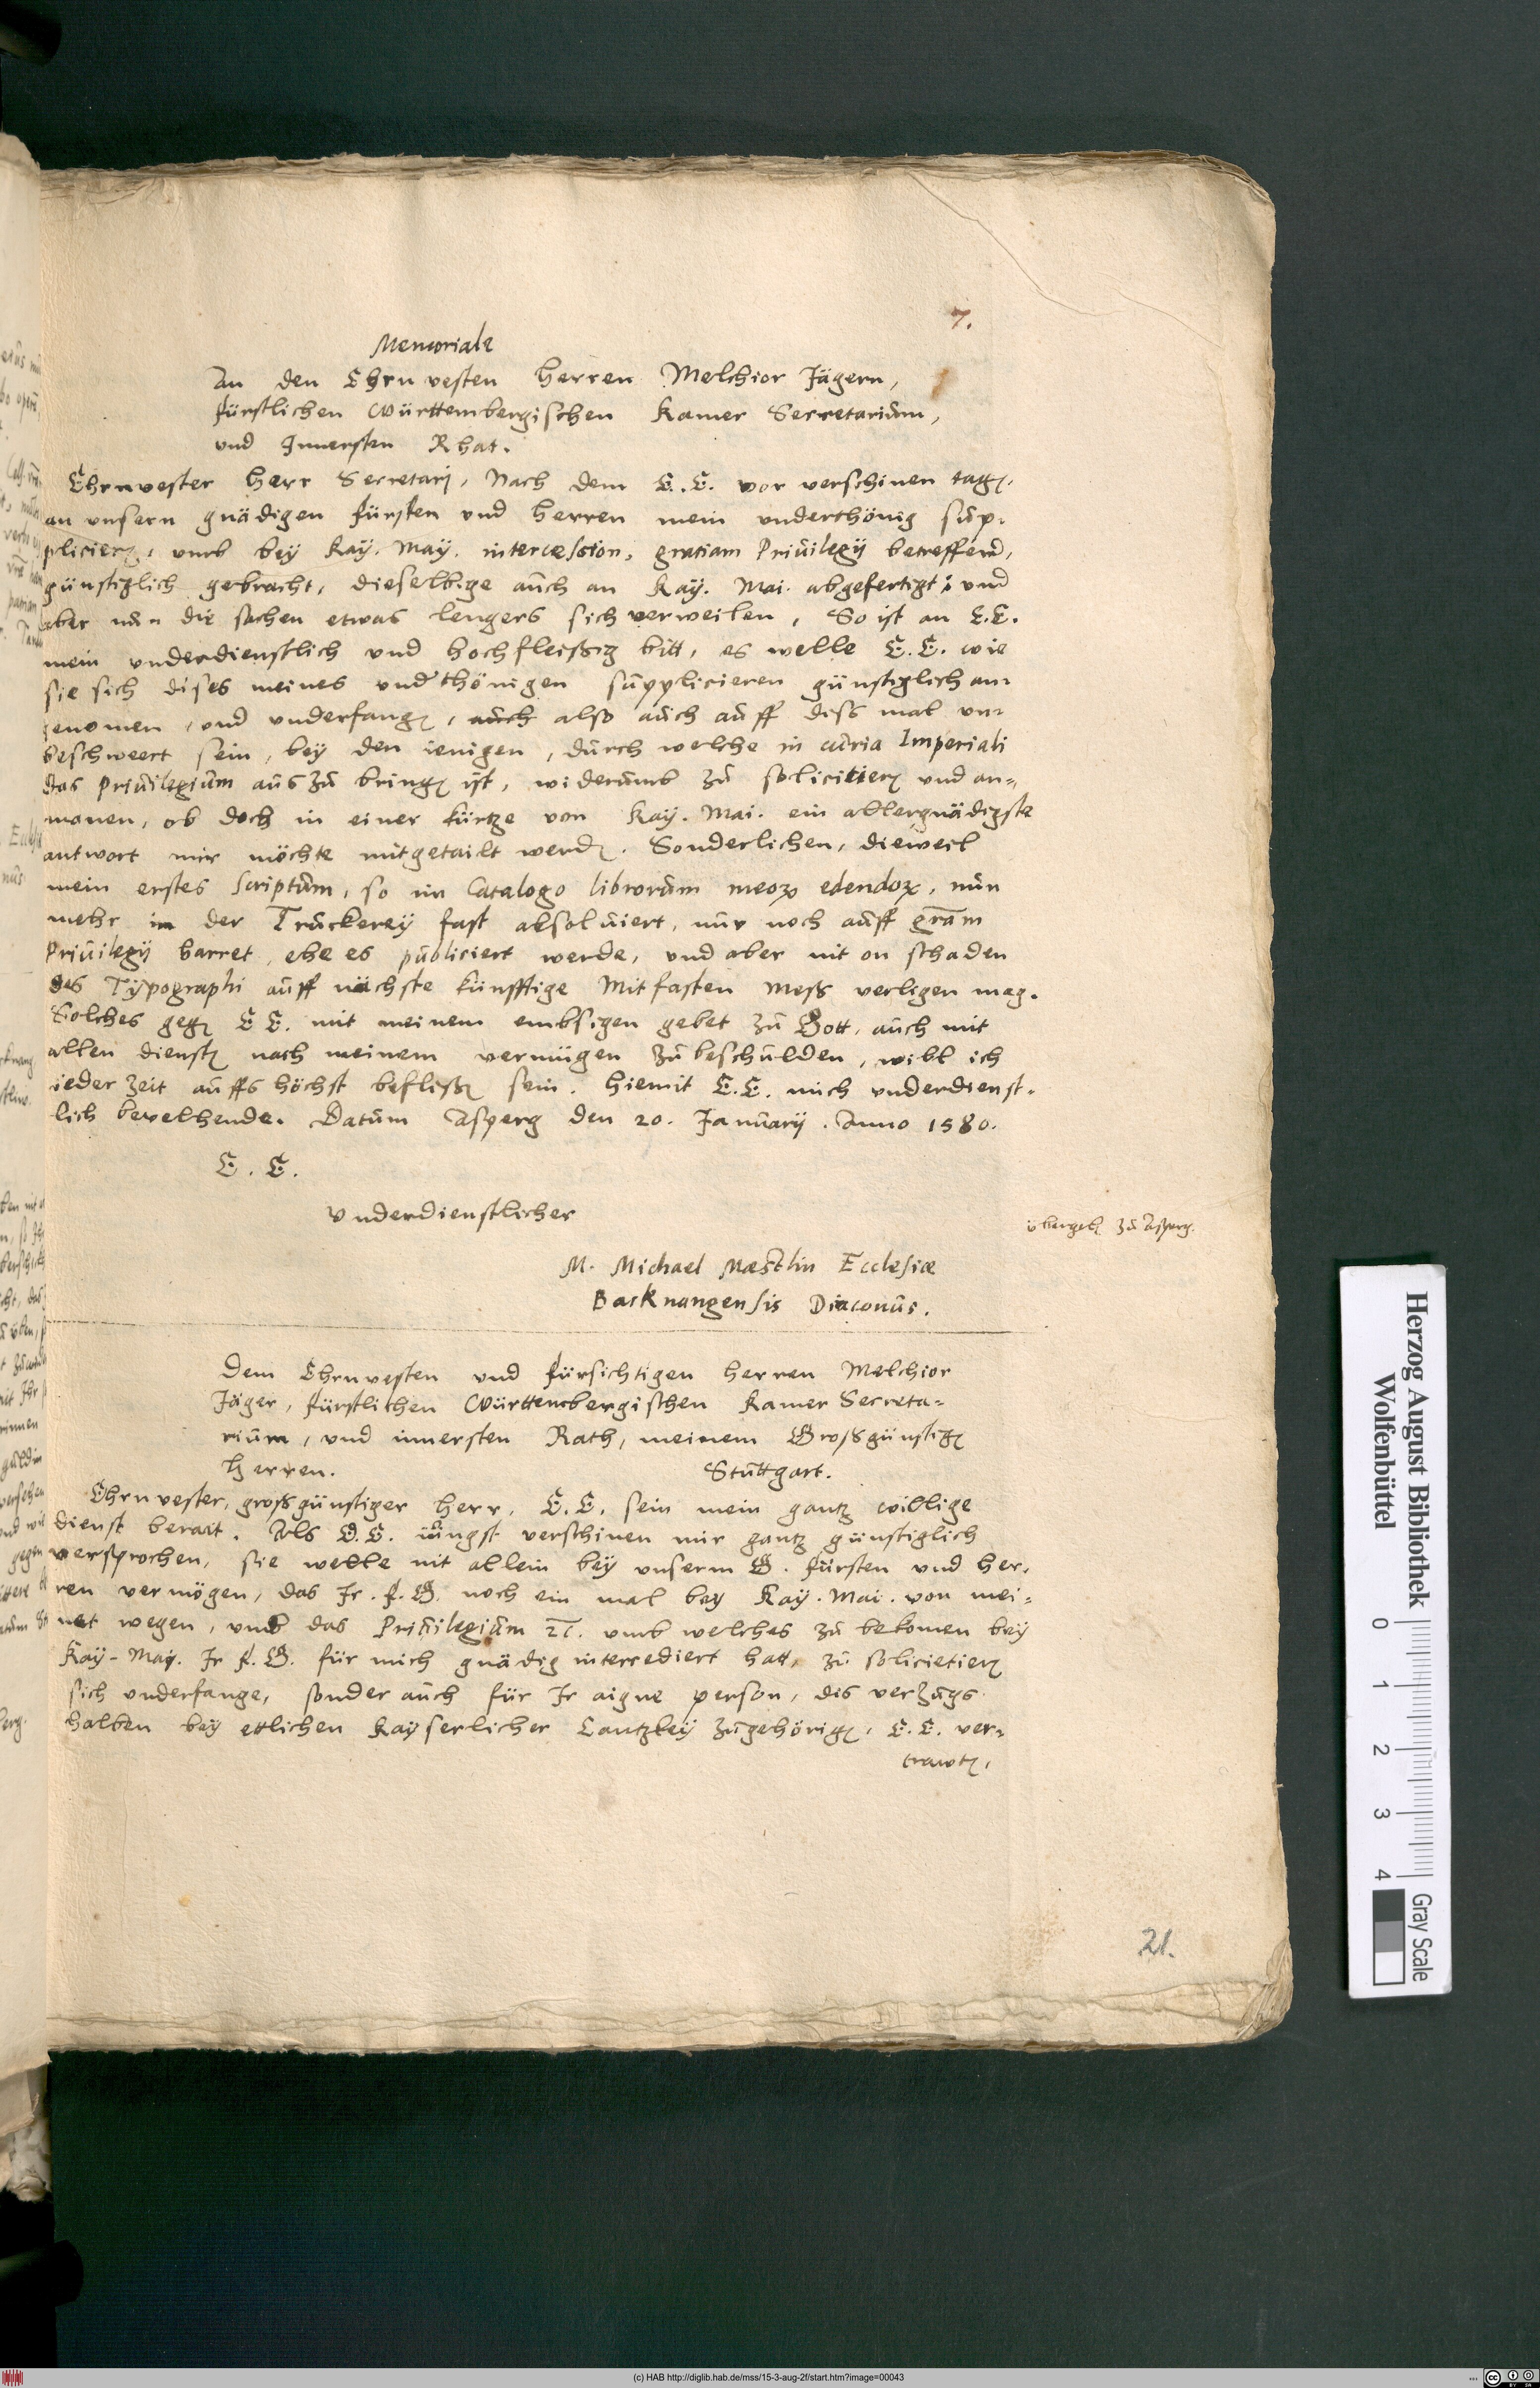 7.
Memoriale
An den Ehrnvesten Herren Melchior Jägern,
fürstlichen Württembergischen Kamer Secretarium,
und Innersten Rhat.
Ehrnvester Herr Secretarj, Nach dem E.E. vor verschinen tagen
an unsern gnädigen fürsten und Herren mein underthönig sup-
plicieren, umb bey Kay. May. intercession, gratiam Privilegij betreffend,
günstiglich gebracht, dieselbige auch an Kay. Mai. abgefertigt: und
aber nun die sachen etwas lengers sich verweilen, So ist an E.E.
mein underdienstlich und hochfleissig bitt, es welle E.E. wie
sie sich dises meines underthönigen supplicieren günstiglich an-
genomen, und underfangen, also auch auff diss mal un-
beschweert sein, bey den ienigen, durch welche in curia Imperiali
das Privilegium auszubringen ist, widerumb zu solicitieren und an-
manen, ob doch in einer kürtze von Kay. Mai. ein allergnädigste
antwort mir möchte mitgetailt werden. Sonderlichen, dieweil
mein erstes Scriptum, so im Catalogo librorum meorum edendorum, nun
mehr in der Truckerey fast absolviert, nur noch auff gratiam
Privilegij harret, ehe es publiciert werde, und aber nit on schaden
des Typographi auff nächste künfftige Mitfasten Mess verligen mag.
Solches gegen E E. mit meinem embsigen gebet zu Gott, auch mit
allen diensten nach meinem vermügen zu beschulden, will ich
ieder zeit auffs höchst beflissen sein. Hiemit E.E. mich underdienst-
lich bevelhende. Datum Asperg den 20. Januarij. Anno 1580.
E. E.
Underdienstlicher
übergeben zu Asperg.
M. Michael Mæstlin Ecclesiæ
Backnangensis Diaconus.
Dem Ehrnvesten und fürsichtigen Herren Melchior
Jäger, fürstlichen Württembergischen Kamer Secreta-
rium, und innersten Rath, meinem Grossgünstigen
Herren. Stuttgart.
Ehrnvester, grossgünstiger Herr, E.E. sein mein gantz willige
dienst berait. Als E.E. iüngst verschinen mir gantz günstiglich
versprochen, sie welle nit allein bey unserm G. fürsten und Her-
ren vermögen, das Ir. f. G. noch ein mal bey Kay. Mai. von mei-
net wegen, umb das Privilegium etc. umb welches zu bekomen bey
Kay. May. Ir f. G. für mich gnädig intercediert hatt, zu solicietieren
sich underfange, sonder auch für Ir aigne person, dis verzugs
halben bey ettlichen Kayserlicher Cantzley zugehörigen, E.E. ver-
trawten,
21.
Herzog August Bibliothek
Wolfenbüttel
0 1 2 3 4
Gray Scale
(c) HAB http://diglib.hab.de/mss/15-3-aug-2f/start.htm?image=00043